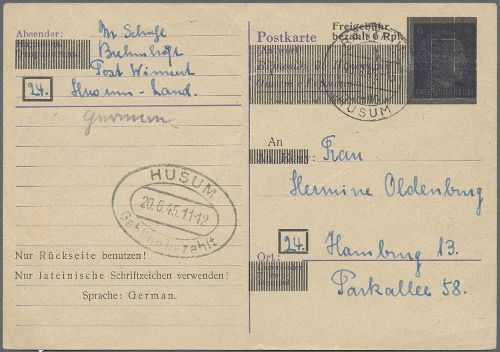 Absender:
M. Schuff
Post Winnert
24. Husum-Land.
Germann
HUSUM
20.6.45.11-12
Gebühr bezahlt
Nur Rückseite benutzen!
Nur lateinische Schriftzeichen verwenden!
Sprache: German.
Postkarte
Freigebühr
bezahlt 6 Rpf.
HUSUM
An
Frau
Hermine Oldenburg
Ort:
24. Hamburg 13.
Parkallee 58.